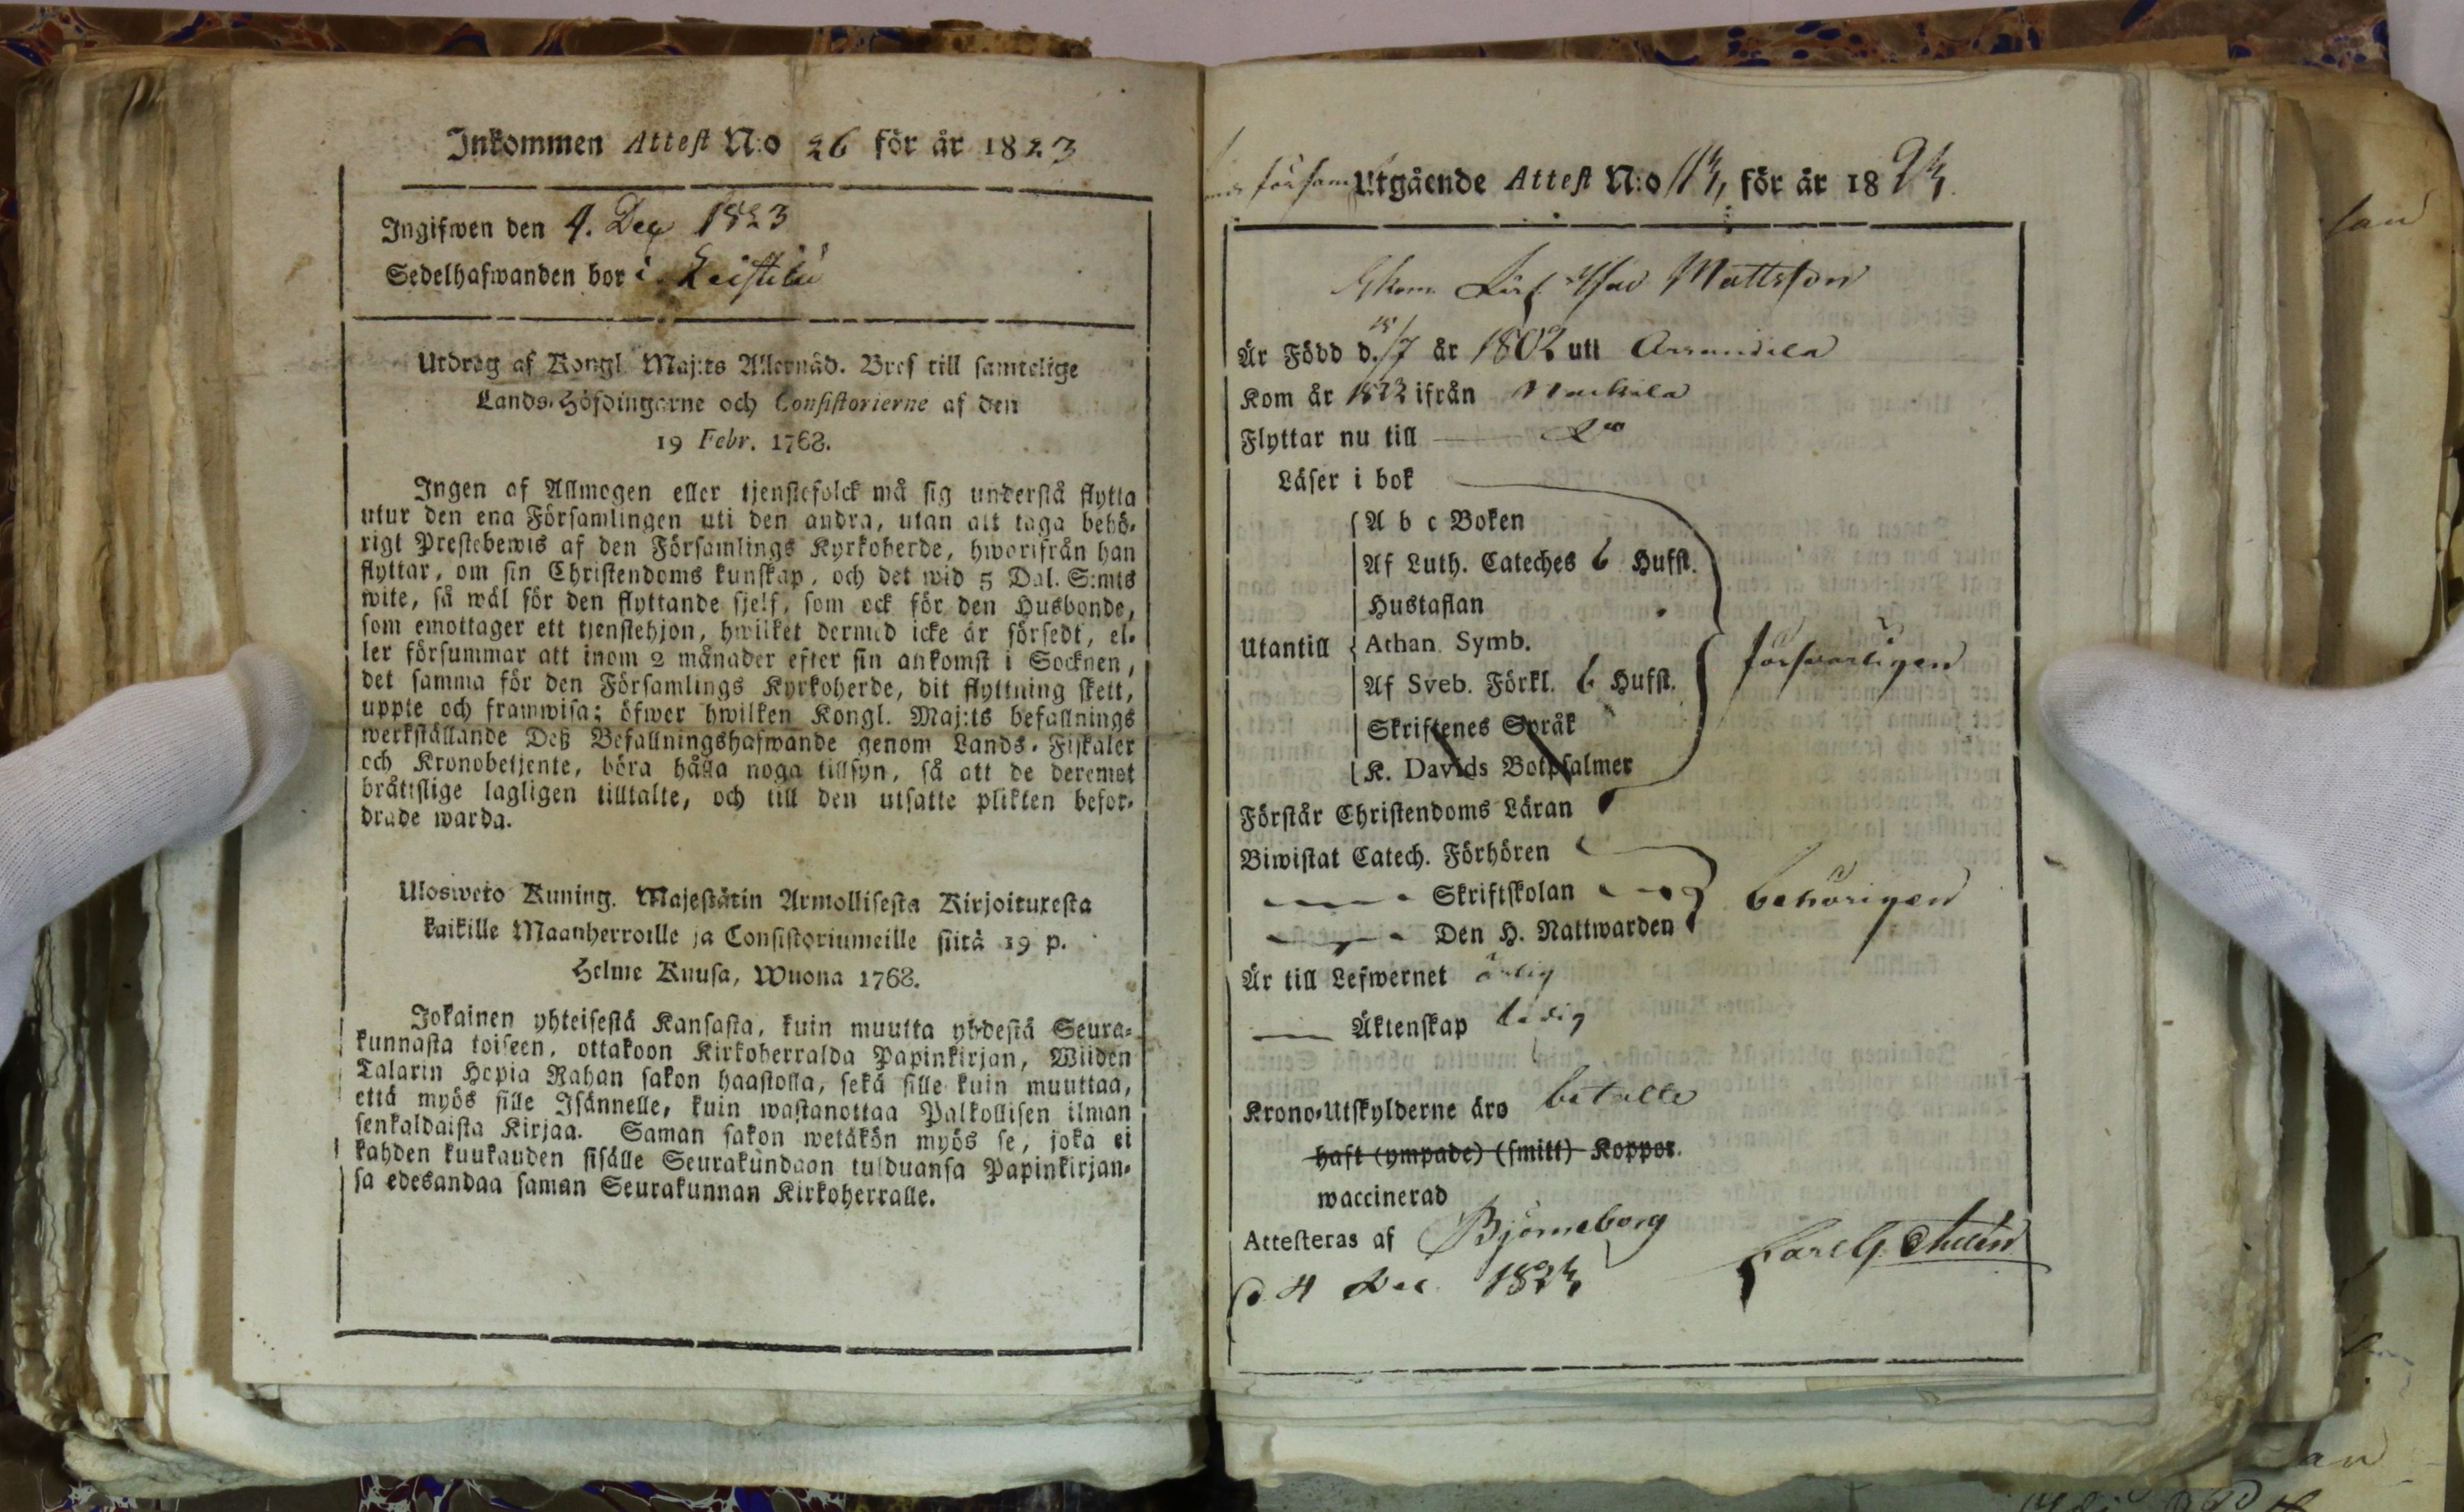 Inkommen Attest N:o 26 för år 1823
Ingifwen den 4. Dec 1823
Sedelhafwanden bor i Leistilä
Utdrag af Kongl. Maj:ts Allernåd. Bref till samtelige
Lands-Höfdingarne och Consistorierne af den
19 Febr. 1768.
Ingen af Allmogen eller tjenstefolck må sig understå flytta
utur den ena Församlingen uti den andra, utan att taga behö-
rigt Prestebewis af den Församlings Kyrkoherde, hworifrån han
flyttar, om sin Christendoms kunskap, och det wid 5 Dal. S:mts
wite, så wäl för den flyttande sjelf, som ock för den Husbonde,
som emottager ett tjenstehjon, hwilket dermed icke är försedt, el-
ler försummar att inom 2 månader efter sin ankomst i Socknen,
det samma för den Församlings Kyrkoherde, dit flyttning skett,
uppte och framwisa; öfwer hwilken Kongl. Maj:ts befallnings
werkställande Deß Befallningshafwande genom Lands-Fiskaler
och Kronobetjente, böra hålla noga tillsyn, så att de deremot
bråtislige lagligen tilltalte, och till den utsatte plikten befor-
drade warda.
Ulosweto Kuning. Majestätin Armollisesta Kirjoituxesta
kaikille Maanherroille ja Consistoriumeille siitä 19 p.
Helme Kuusa, Wuona 1768.
Jokainen yhteisestä Kansasta, kuin muutta yhdestä Seura-
kunnasta toiseen, ottakoon Kirkoherralda Papinkirjan, Wiiden
Talarin Hopia Rahan sakon haastolla, sekä sille kuin muuttaa,
että myös sille Isännelle, kuin wastanottaa Palkollisen ilman
senkaldaista Kirjaa. Saman sakon wetäkön myös se, joka ei
kahden kuukauden sisälle Seurakundaan tulduansa Papinkirjan-
sa edesandaa saman Seurakunnan Kirkoherralle.
Utgående Attest N:o 113, för år 1823.
Mattsson
Är Född d. 15/7 år 1802 uti
Kom år 1823 ifrån Nackila
Flyttar nu till
Läser i bok
A b c Boken
Af Luth. Cateches 6 Hufst.
Hustaflan
Utantill Athan. Symb.
Af Sveb. Förkl. 6 Hufst. försvarligen
Skriftenes Språk
K. Davids Botpsalmer
Förstår Christendoms Läran
Biwistat Catech. Förhören
Skriftskolan behörigen
Den H. Nattwarden
Är till Lefwernet ärlig
Äktenskap ledig
Krono-Utskylderne äro betalte
haft (ympade) (smitt) Koppor.
waccinerad
Attesteras af Björneborg
d 4 Dec. 1823